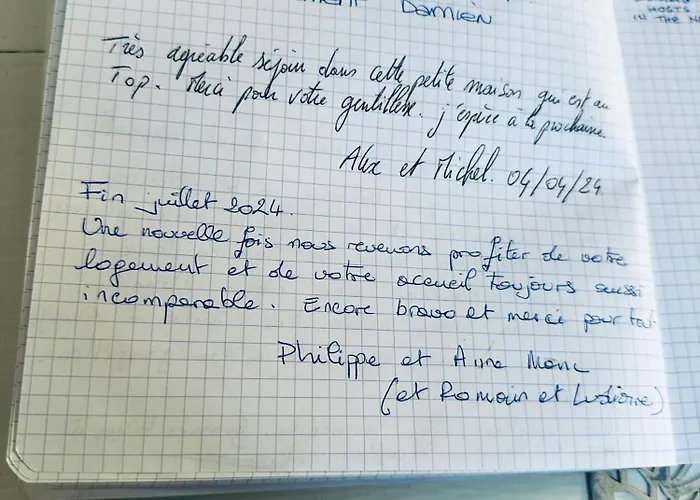 Damien
HOSTS
IN THE
Très agréable séjour dans cette petite maison qui est au
Top. Merci pour votre gentillesse. j'espère à la prochaine
Alex et Michel. 04/04/24
Fin juillet 2024.
Une nouvelle fois nous revenons profiter de votre
logement et de votre accueil toujours aussi
incomparable. Encore bravo et merci pour tout
Philippe et Anne Marie
(et Romain et